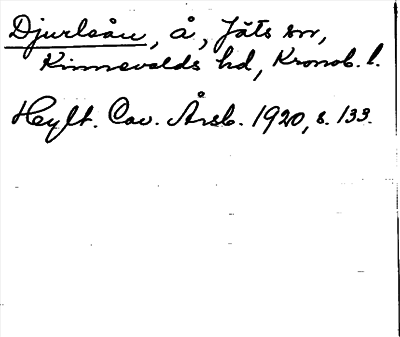 Djurleån, å, Jäts sn,
Kinnevalds hd, Kronob. l.
Heylt. Cav. Årsb. 1920, s. 133.